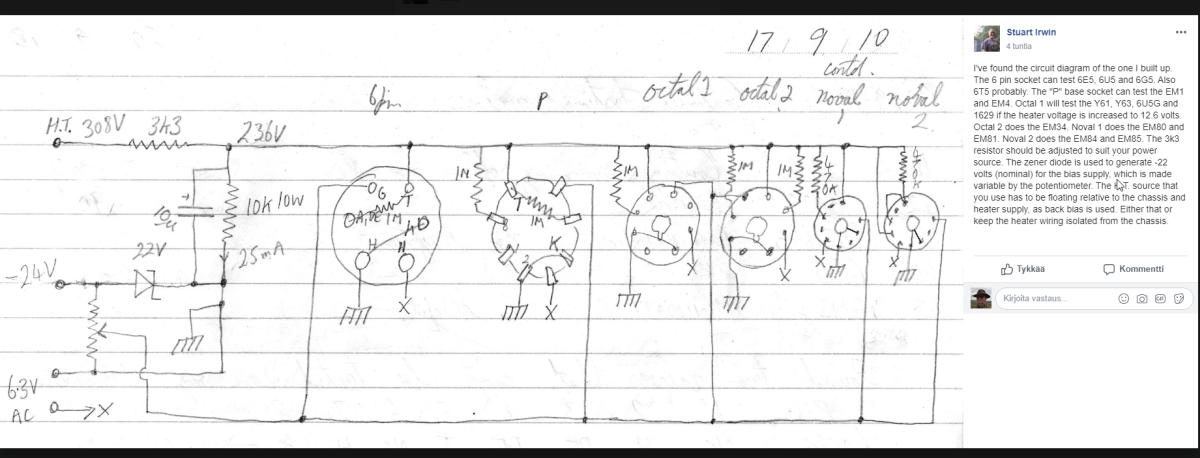 17, 9, 10
contd.
6pin
P
octal 1
octal 2
noval
1
noval
2
H.T. 308V 3k3 236V
10μ
10K 10W
25mA
22V
-24V
6.3V
AC
X
G
T
1M
H
H
X
1M
T
1M
K
X
1M
X
1M
X
1M
470K
X
470K
X
Stuart Irwin
4 tuntia
I've found the circuit diagram of the one I built up.
The 6 pin socket can test 6E5, 6U5 and 6G5. Also
6T5 probably. The "P" base socket can test the EM1
and EM4. Octal 1 will test the Y61, Y63, 6U5G and
1629 if the heater voltage is increased to 12.6 volts.
Octal 2 does the EM34. Noval 1 does the EM80 and
EM81. Noval 2 does the EM84 and EM85. The 3k3
resistor should be adjusted to suit your power
source. The zener diode is used to generate -22
volts (nominal) for the bias supply, which is made
variable by the potentiometer. The H.T. source that
you use has to be floating relative to the chassis and
heater supply, as back bias is used. Either that or
keep the heater wiring isolated from the chassis.
Tykkää
Kommentti
Kirjoita vastaus...
GIF